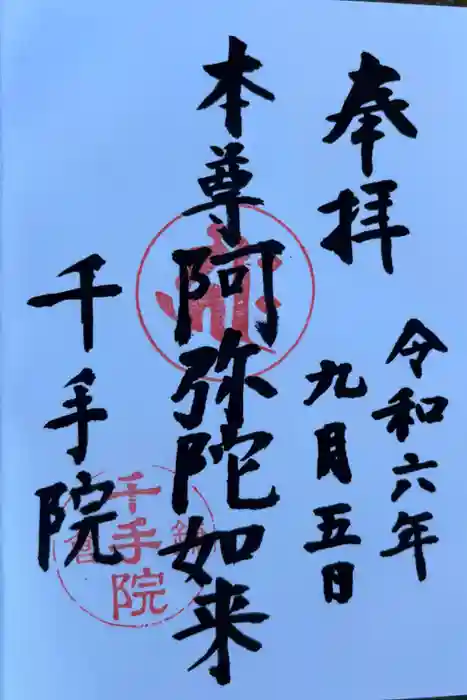 奉拝
令和六年
九月五日
本尊阿弥陀如来
千手院
千手院